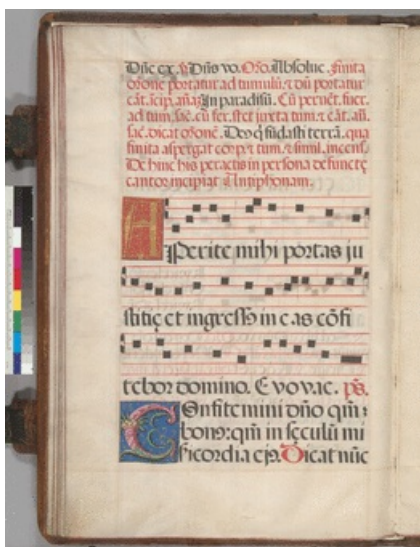 Dñe ex. ℣ Dñs vo. Oŕo. Absolue. finita
orone portatur ad tumulũ. & dũ portatur
cãt. icip. añaz In paradisũ. Cũ peruẽt. fuer.
ad tum. sac. cũ fer. stet juxta tum. & cãt. añ.
sac. dicat oronẽ. Deus q̃ fũdasti terrã. qua
finita aspergat corp. & tum. & simil. incens.
De hinc his peractis in persona defunctę
cantor incipiat Antiphonam.
APerite mihi portas ju
stitię et ingressus in eas cõfi
tebor domino. E vo vae. ps.
COnfitemini dño qm̃:
bonus: qm̃ in sęculũ mi
sicordia ejus. Dicat nũc